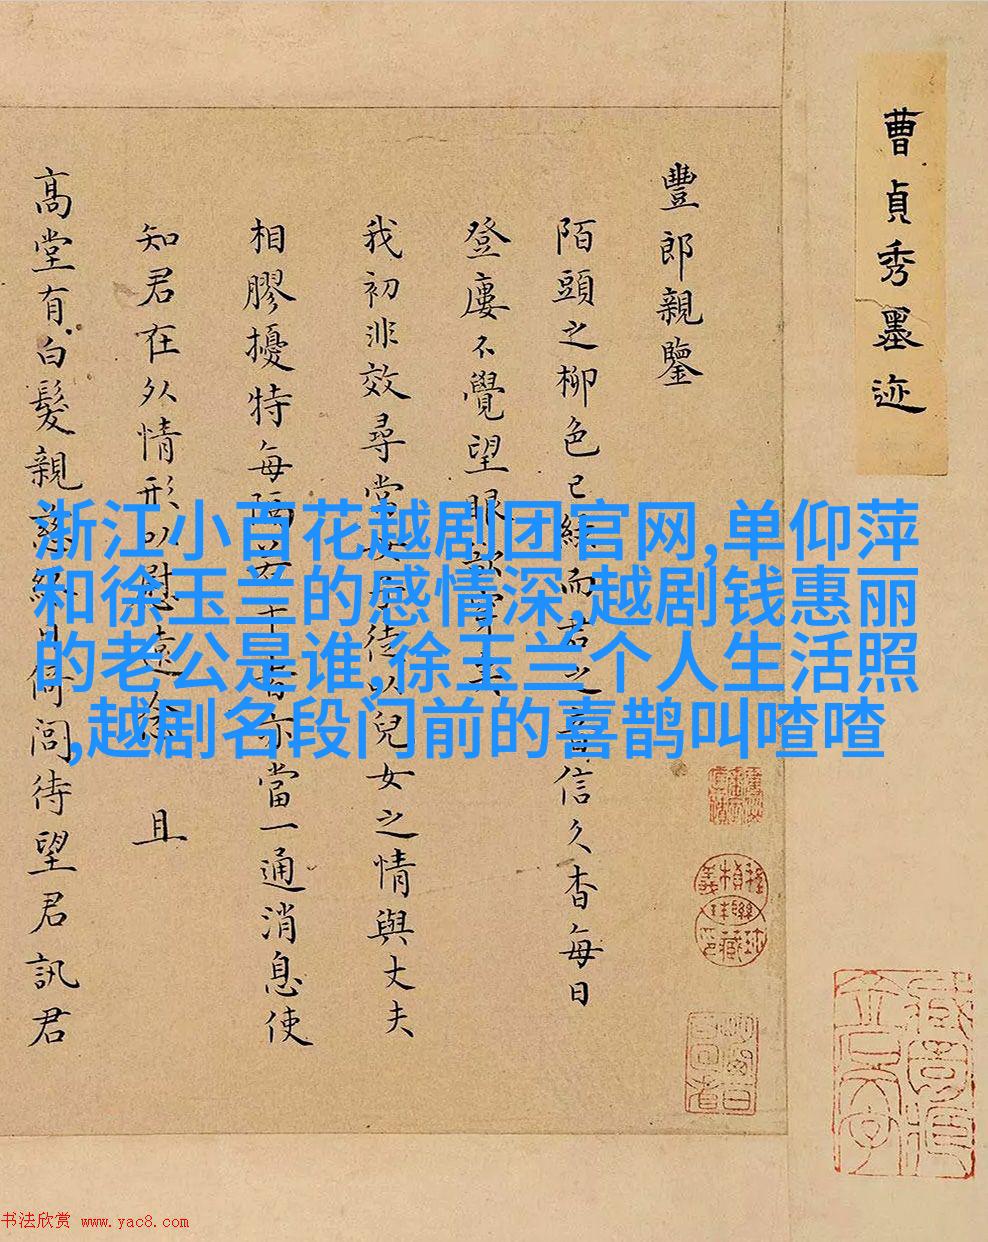 曹貞秀墨迹
豐郎親鑒
陌頭之柳色已綠而君之音信久杳每日
登廔不覺望眼
我初非效尋常女子徒以兒女之情與丈夫
相膠擾特每隔若干時亦當一通消息使
知君在外情形以慰遠 且
高堂有白髮親慈終日倚閭待望君訊君
浙江小百花越剧团官网,单仰萍
和徐玉兰的感情深,越剧钱惠丽
的老公是谁,徐玉兰个人生活照
,越剧名段门前的喜鹊叫喳喳
书法欣赏 www.yac8.com